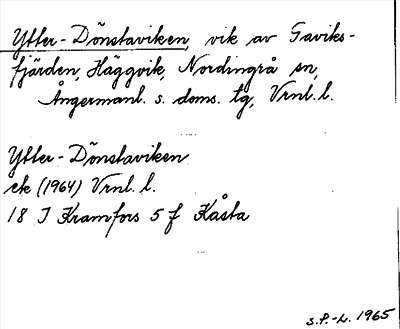 Ytter-Dönstaviken, vik av Gaviks-
fjärden, Häggvik, Nordingrå sn,
Ångermanl. s. doms. tg, Vrnl. l.
Ytter-Dönstaviken
ek (1964) Vrnl. l.
18 I Kramfors 5 f Kåsta
S.P.-L. 1965